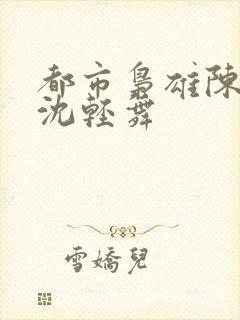 都市梟雄陳
沈輕舞
雪嬌兒